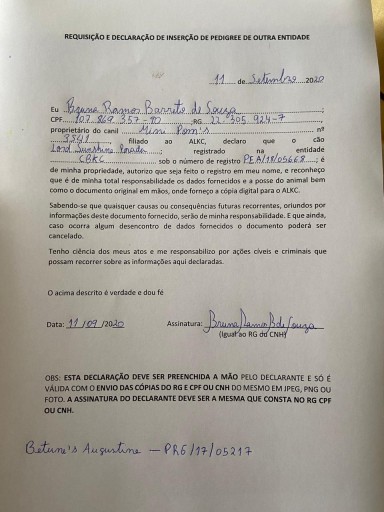 REQUISIÇÃO E DECLARAÇÃO DE INSERÇÃO DE PEDIGREE DE OUTRA ENTIDADE
11 de Setembro 2020
Eu Bruna Ramos Barreto de Souza;
CPF 107 869 357-90, RG 22 305 924-7,
proprietário do canil Mini Pom's nº
3541 filiado ao ALKC, declaro que o cão
Lord Sunshine; registrado na entidade
CBKC sob o número de registro PEA/18/05668; é
de minha propriedade, autorizo que seja feito o registro em meu nome, e reconheço
que é de minha total responsabilidade os dados fornecidos e a posse do animal bem
como o documento original em mãos, onde forneço a cópia digital para o ALKC.
Sabendo-se que quaisquer causas ou consequências futuras recorrentes, oriundos por
informações deste documento fornecido, serão de minha responsabilidade. E que ainda,
caso ocorra algum desencontro de dados fornecidos o documento poderá ser
cancelado.
Tenho ciência dos meus atos e me responsabilizo por ações cíveis e criminais que
possam recorrer sobre as informações aqui declaradas.
O acima descrito é verdade e dou fé
Data: 11/09/2020 Assinatura: Bruna Ramos B de Souza
(Igual ao RG do CNH)
OBS: ESTA DECLARAÇÃO DEVE SER PREENCHIDA A MÃO PELO DECLARANTE E SÓ É
VÁLIDA COM O ENVIO DAS CÓPIAS DO RG E CPF OU CNH DO MESMO EM JPEG, PNG OU
FOTO. A ASSINATURA DO DECLARANTE DEVE SER A MESMA QUE CONSTA NO RG CPF
OU CNH.
Betune's Augustine — PRG/17/05217